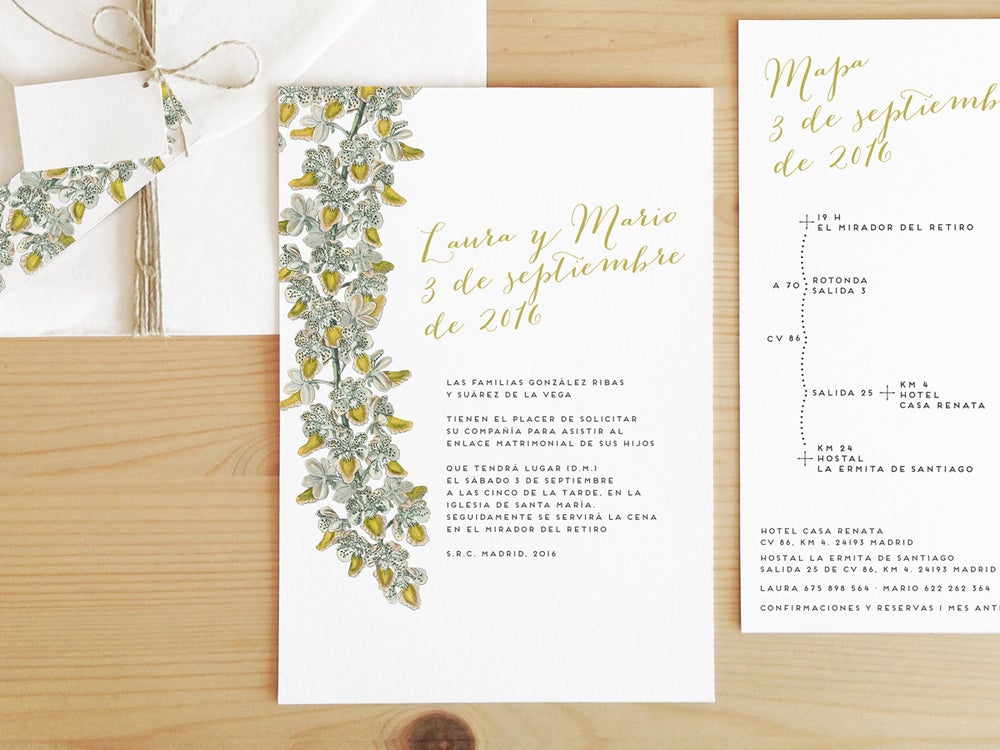 Laura y Mario
3 de septiembre
de 2016
LAS FAMILIAS GONZÁLEZ RIBAS
Y SUÁREZ DE LA VEGA
TIENEN EL PLACER DE SOLICITAR
SU COMPAÑÍA PARA ASISTIR AL
ENLACE MATRIMONIAL DE SUS HIJOS
QUE TENDRÁ LUGAR (D.M.)
EL SÁBADO 3 DE SEPTIEMBRE
A LAS CINCO DE LA TARDE, EN LA
IGLESIA DE SANTA MARÍA.
SEGUIDAMENTE SE SERVIRÁ LA CENA
EN EL MIRADOR DEL RETIRO
S.R.C. MADRID, 2016
Mapa
3 de septiemb
de 2016
19 H
EL MIRADOR DEL RETIRO
A 70
ROTONDA
SALIDA 3
CV 86
SALIDA 25
KM 4
HOTEL
CASA RENATA
KM 24
HOSTAL
LA ERMITA DE SANTIAGO
HOTEL CASA RENATA
CV 86, KM 4. 24193 MADRID
HOSTAL LA ERMITA DE SANTIAGO
SALIDA 25 DE CV 86, KM 4. 24193 MADRID
LAURA 675 898 564 · MARIO 622 262 364
CONFIRMACIONES Y RESERVAS 1 MES ANT